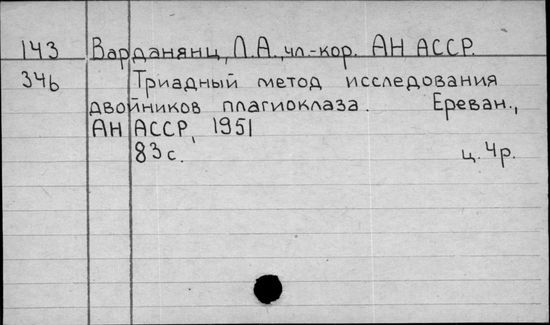 143 Варданянц, Л.А., чл.-кор. АН АССР.
346 Триадный метод исследования
двойников плагиоклаза. Ереван.,
АН АССР, 1951
83 с. ц. 4р.